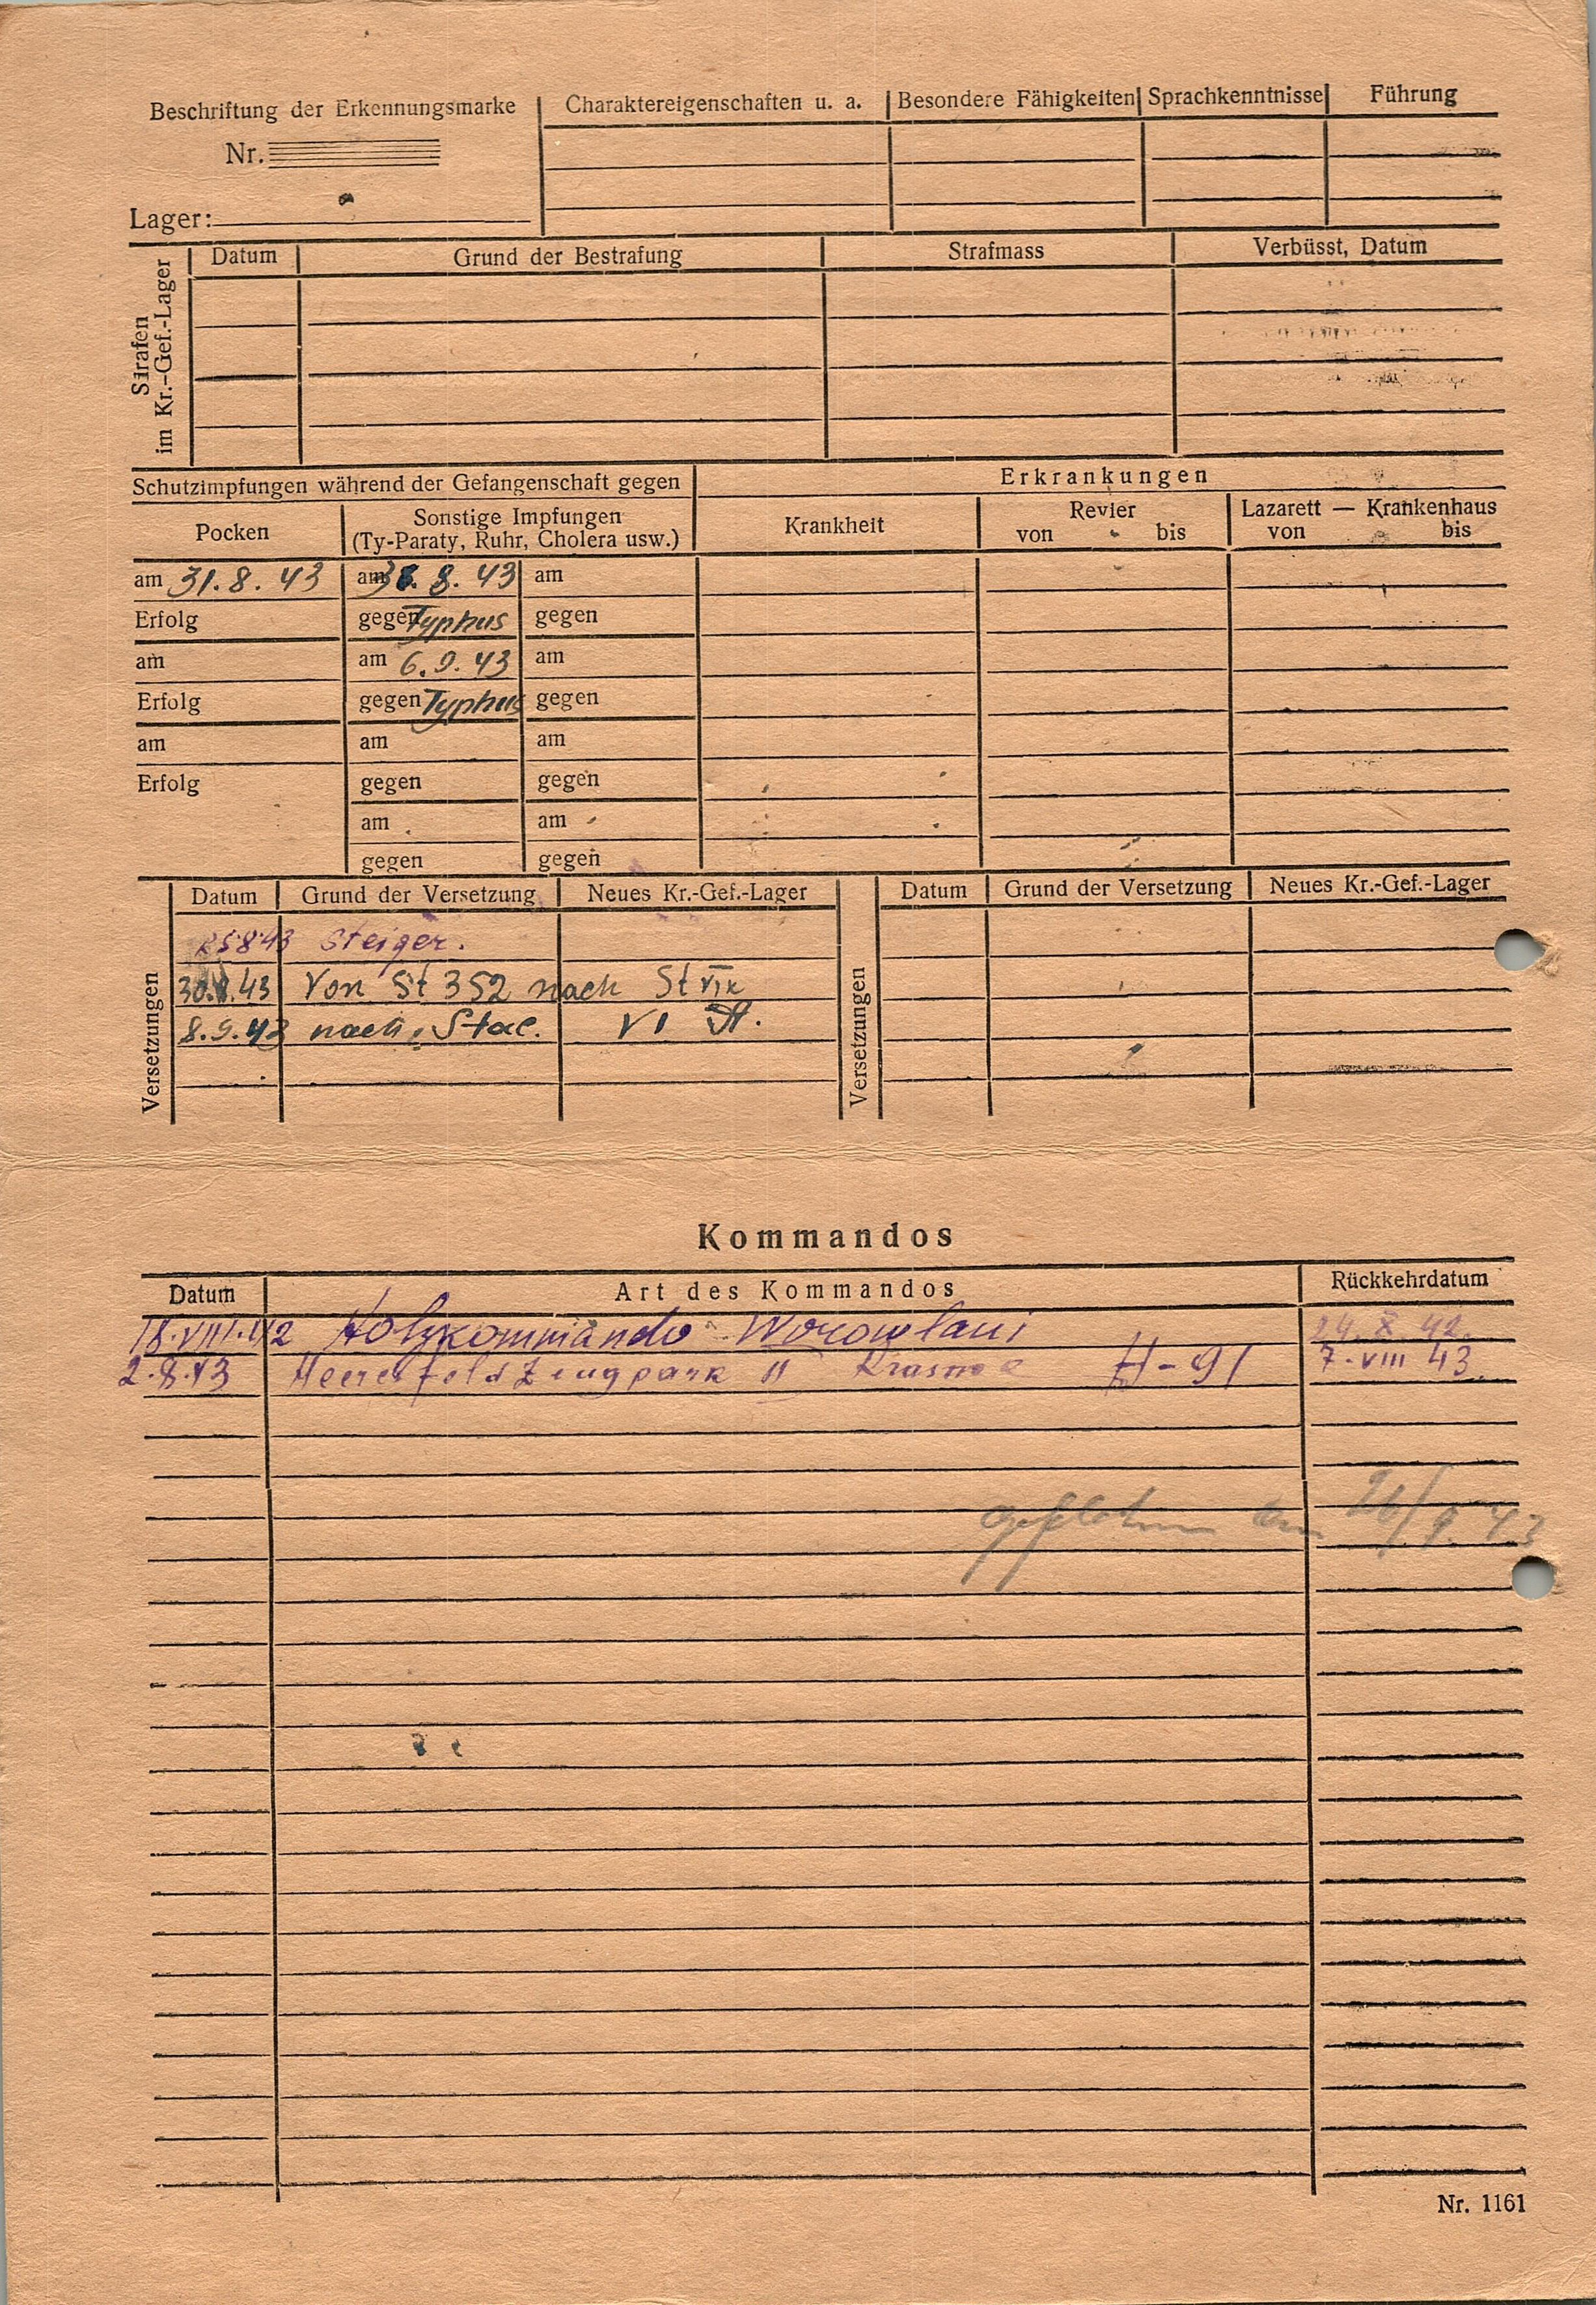 Beschriftung der Erkennungsmarke | Charaktereigenschaften u. a. | Besondere Fähigkeiten | Sprachkenntnisse | Führung
Nr.
Lager:
Strafen
im Kr.-Gef.-Lager
Datum | Grund der Bestrafung | Strafmass | Verbüsst, Datum
Schutzimpfungen während der Gefangenschaft gegen | Erkrankungen
Pocken | Sonstige Impfungen | Krankheit | Revier | Lazarett — Krankenhaus
(Ty-Paraty, Ruhr, Cholera usw.) | von bis | von bis
am 31.8.43 | am 8.43 | am
Erfolg | gegen Typhus | gegen
am | am 6.9.43 | am
Erfolg | gegen Typhus | gegen
am | am | am
Erfolg | gegen | gegen
am | am
gegen | gegen
Versetzungen
Datum | Grund der Versetzung | Neues Kr.-Gef.-Lager
25843 Steiger.
30.8.43 Von St 352 nach St VIK
8.9.43 nach Stal. VI
Versetzungen
Datum | Grund der Versetzung | Neues Kr.-Gef.-Lager
Kommandos
Datum | Art des Kommandos | Rückkehrdatum
18.VIII.42 Holzkommando Worowlani 24.X.42.
2.8.43 Heeresfeldzeugpark II Krasnoe H-91 7.VIII 43.
26/9.43
Nr. 1161